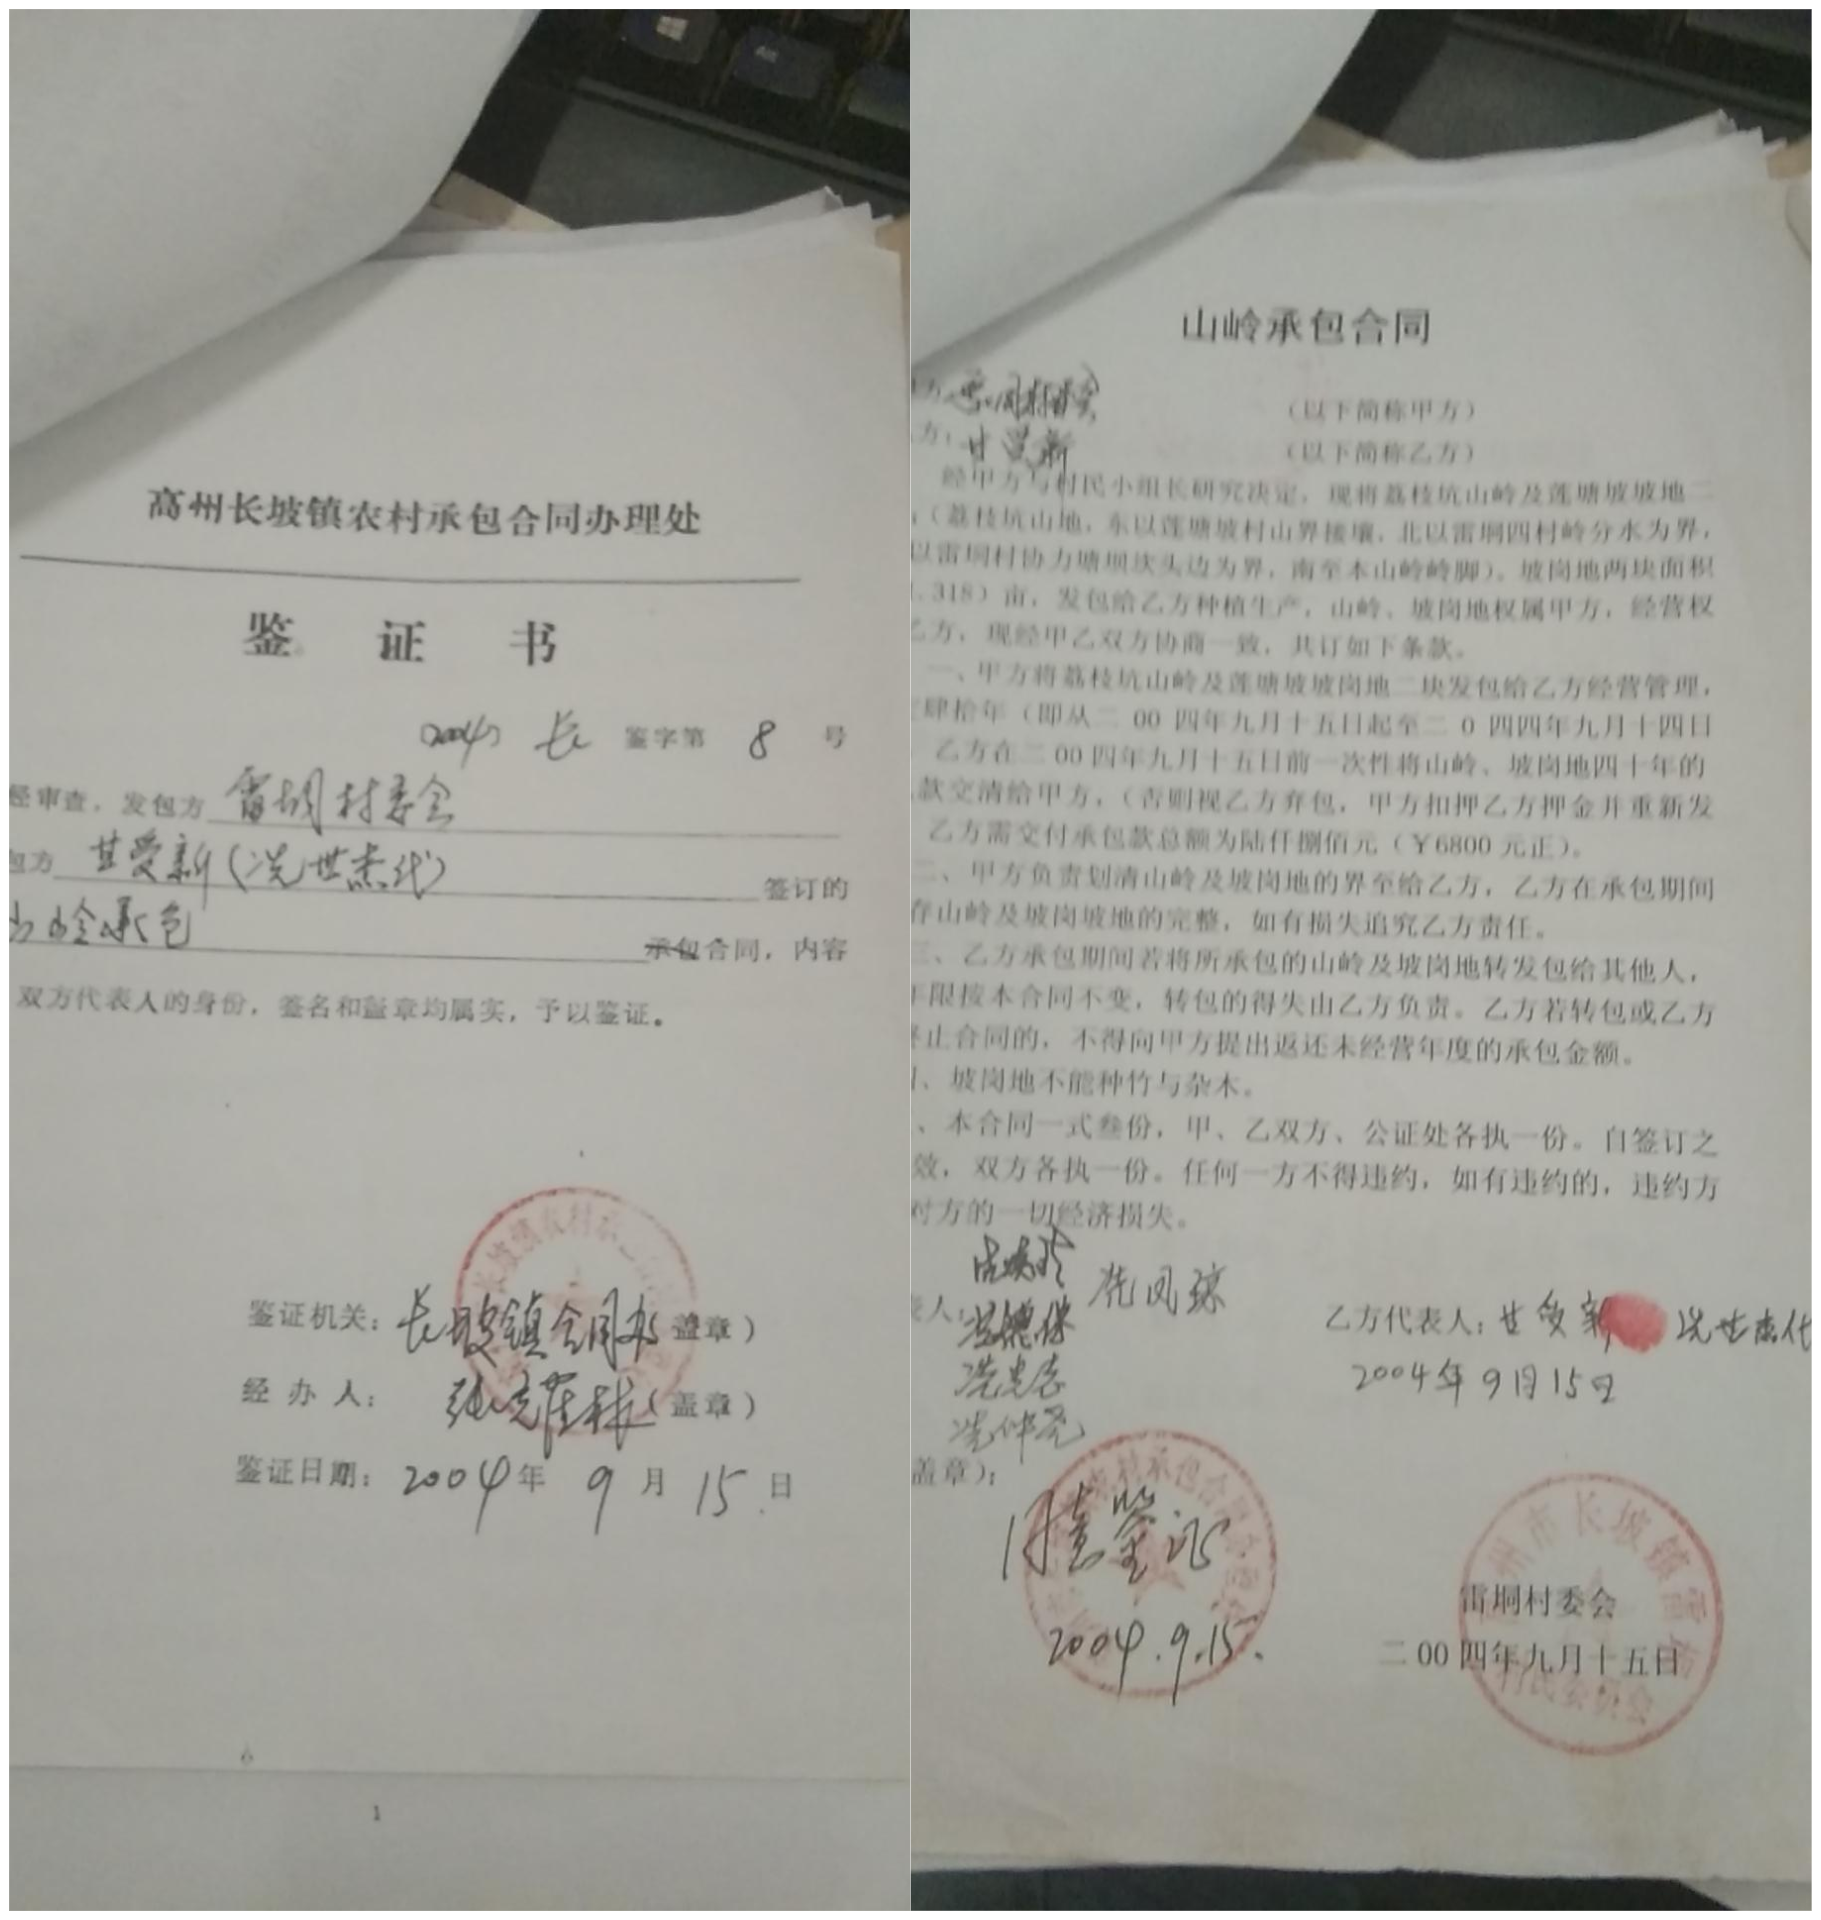 高州长坡镇农村承包合同办理处
鉴 证 书
(2004) 长 鉴字第 8 号
经审查，发包方 雷垌村委会
包方 甘受新(冼世杰代) 签订的
山岭承包 承包合同，内容
双方代表人的身份，签名和盖章均属实，予以鉴证。
鉴证机关：长坡镇合同办 盖章）
经 办 人： （盖章）
鉴证日期：2004年 9 月 15 日
1
山岭承包合同
雷垌村委会 （以下简称甲方）
方：甘受新 （以下简称乙方）
经甲方与村民小组长研究决定，现将荔枝坑山岭及莲塘坡坡地二
（荔枝坑山地，东以莲塘坡村山界接壤，北以雷垌四村岭分水为界，
以雷垌村协力塘坝坎头边为界，南至本山岭岭脚），坡岗地两块面积
.318）亩，发包给乙方种植生产，山岭、坡岗地权属甲方，经营权
乙方，现经甲乙双方协商一致，共订如下条款。
一、甲方将荔枝坑山岭及莲塘坡坡岗地二块发包给乙方经营管理，
肆拾年（即从二 00 四年九月十五日起至二 0 四四年九月十四日
乙方在二 00 四年九月十五日前一次性将山岭、坡岗地四十年的
款交清给甲方，（否则视乙方弃包，甲方扣押乙方押金并重新发
乙方需交付承包款总额为陆仟捌佰元（￥6800 元正）。
二、甲方负责划清山岭及坡岗地的界至给乙方，乙方在承包期间
存山岭及坡岗坡地的完整，如有损失追究乙方责任。
三、乙方承包期间若将所承包的山岭及坡岗地转发包给其他人，
年限按本合同不变，转包的得失由乙方负责。乙方若转包或乙方
终止合同的，不得向甲方提出返还未经营年度的承包金额。
、坡岗地不能种竹与杂木。
、本合同一式叁份，甲、乙双方、公证处各执一份。自签订之
效，双方各执一份。任何一方不得违约，如有违约的，违约方
对方的一切经济损失。
表人：
乙方代表人：甘受新 冼世杰代
2004年9月15日
冼仲尧
盖章）：
同意鉴证
2004.9.15.
州市长坡镇雷垌
村民委员会
雷垌村委会
二 00 四年九月十五日